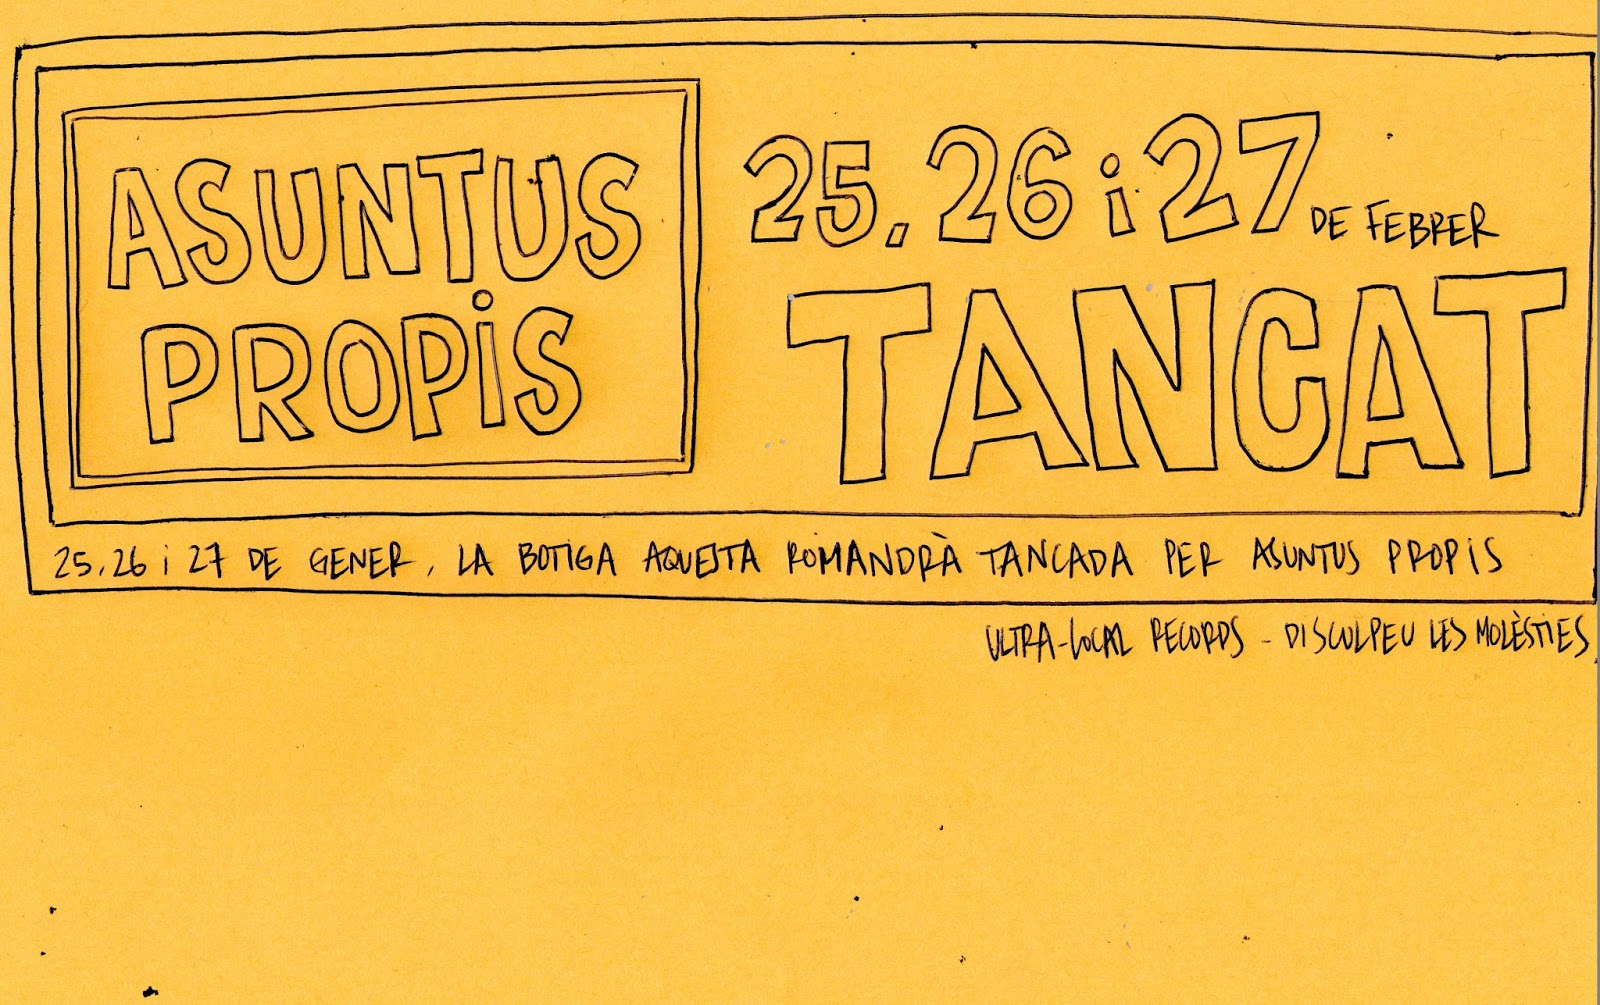 ASUNTUS
PROPiS
25. 26 i 27 DE FEBRER
TANCAT
25, 26 i 27 DE GENER, LA BOTIGA AQUESTA ROMANDRÀ TANCADA PER ASUNTUS PROPiS
ULTRA-LOCAL RECORDS - DISCULPEU LES MOLÈSTIES